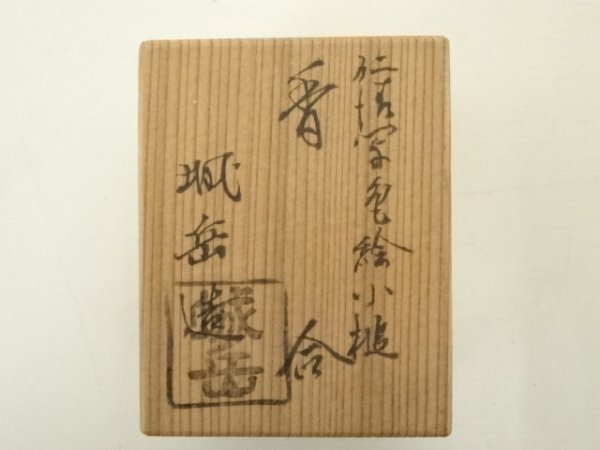 仁清写色絵小槌
香合
城岳